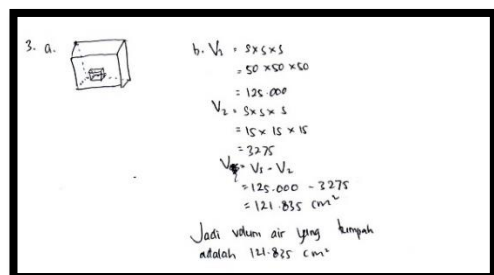 3. a.
b. V₁ = s x s x s
= 50 x 50 x 50
= 125.000
V₂ = s x s x s
= 15 x 15 x 15
= 3275
V = V₁ - V₂
= 125.000 - 3275
= 121.835 cm²
Jadi volum air yang tumpah
adalah 121.835 cm²